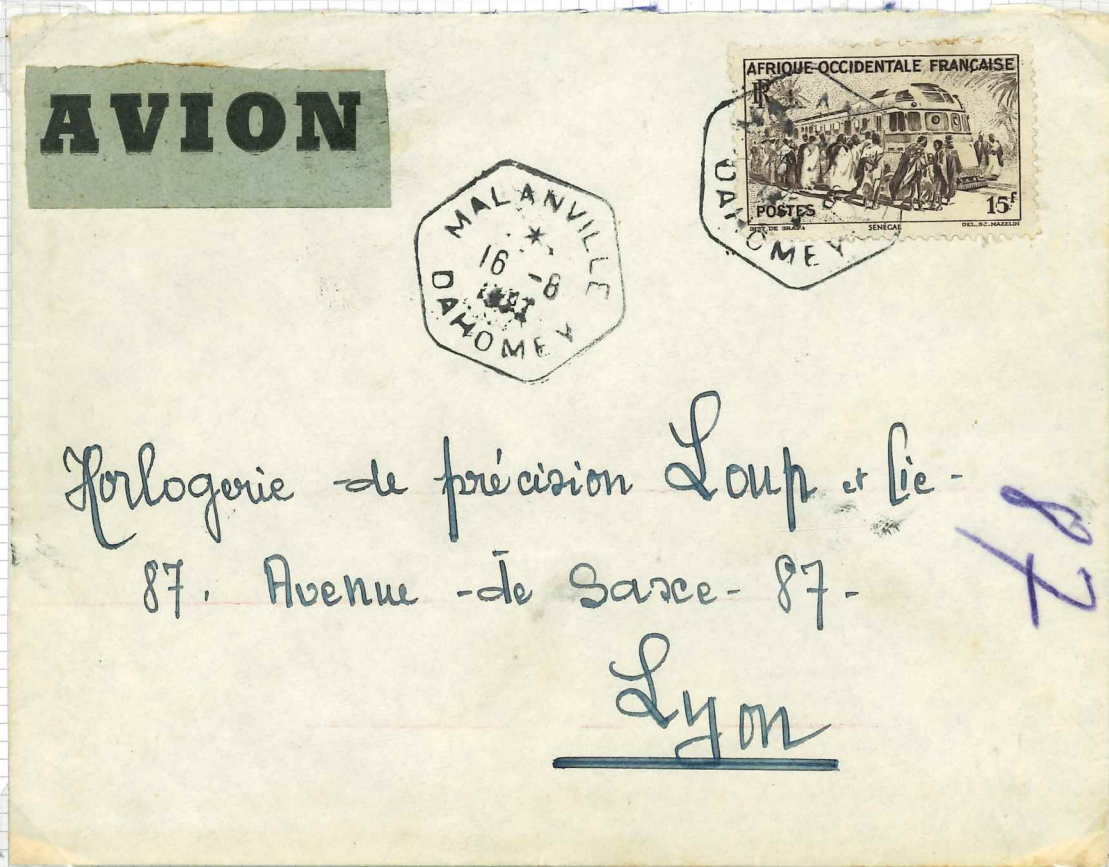 AVION
AFRIQUE OCCIDENTALE FRANÇAISE
RF
POSTES
15F
SÉNÉGAL
DEL.SC.MAZELIN
DAHOMEY
MALANVILLE
16 -8
DAHOMEY
Horlogerie de précision Loup et Cie -
87. Avenue - de Saxe - 87 -
Lyon
87